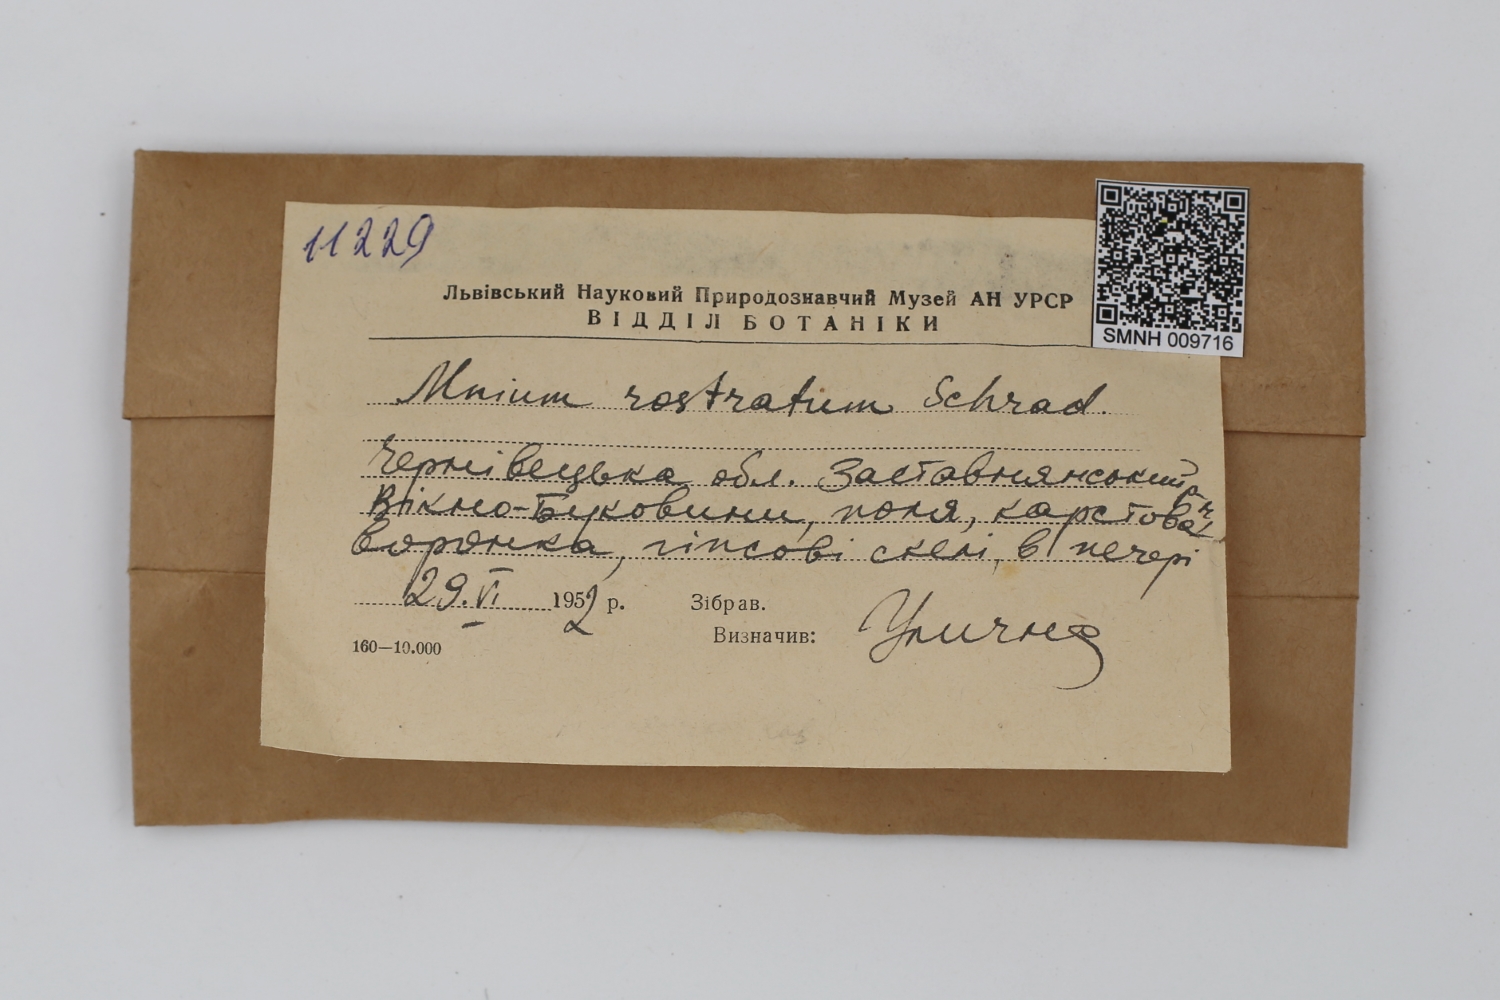 11229
Львівський Науковий Природознавчий Музей АН УРСР
ВІДДІЛ БОТАНІКИ
SMNH 009716
Mnium rostratum Schrad.
Чернівецька обл. Заставнянський р-н
Вікно-Буковини, поля, карстова
воронка, гіпсові скелі, в печері
29.VI 1952 р. Зібрав.
Визначив: Улична
160—10.000